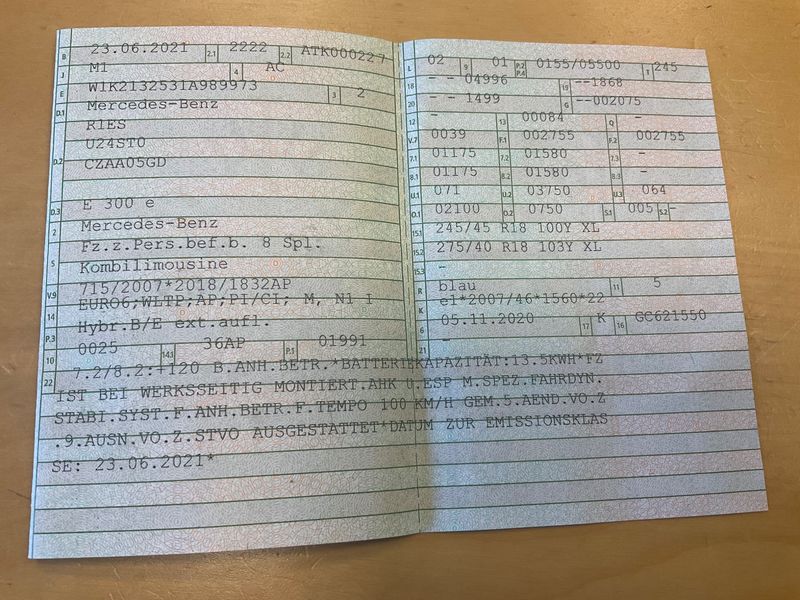 B 23.06.2021 2.1 2222 2.2 ATK000227
J M1 4 AC
E W1K2132531A989973 3 2
D.1 Mercedes-Benz
R1ES
D.2 U24ST0
CZAA05GD
D.3 E 300 e
2 Mercedes-Benz
Fz.z.Pers.bef.b. 8 Spl.
5 Kombilimousine
V.9 715/2007*2018/1832AP
14 EURO6;WLTP;AP;PI/CI; M, N1 I
P.3 Hybr.B/E ext.aufl.
10 0025 14.1 36AP P.1 01991
L 02 9 01 P.2 P.4 0155/05500 T 245
18 - - 04996 19 --1868
20 - - 1499 G --002075
12 - 13 00084 Q -
V.7 0039 F.1 002755 F.2 002755
7.1 01175 7.2 01580 7.3 -
8.1 01175 8.2 01580 8.3 -
U.1 071 U.2 03750 U.3 064
O.1 02100 O.2 0750 S.1 005 S.2 -
15.1 245/45 R18 100Y XL
15.2 275/40 R18 103Y XL
15.3 -
R blau 11 5
K e1*2007/46*1560*22
6 05.11.2020 17 K 16 GC621550
21 -
22 7.2/8.2:+120 B.ANH.BETR.*BATTERIEKAPAZITÄT:13.5KWH*FZ
IST BEI WERKSSEITIG MONTIERT.AHK U.ESP M.SPEZ.FAHRDYN.
STABI.SYST.F.ANH.BETR.F.TEMPO 100 KM/H GEM.5.AEND.VO.Z
.9.AUSN.VO.Z.STVO AUSGESTATTET*DATUM ZUR EMISSIONSKLAS
SE: 23.06.2021*